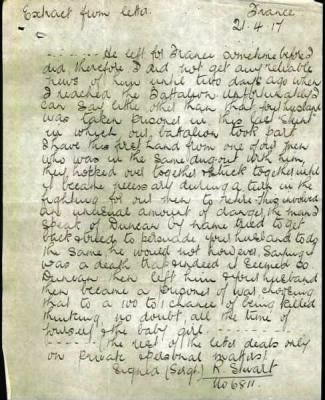 Extract from letter.
France
21.4.17
- - - - - - - He left for France sometime before I
did therefore I did not get any reliable
news of him until two days ago when
I reached the Battalion unfortunately I
can say little other than that your husband
was taken prisoner in this last stunt
in which our battalion took part
I have this first hand from one of our men
who was in the same dug-out with him,
they hopped out together & stuck together until
it became necessary during a turn in the
fighting for our men to retire. This involved
an unusual amount of danger, the man I
speak of Duncan by name tried to get
back & tried to persuade your husband to do
the same he would not however, saying it
was a death trap indeed it seemed so
Duncan then left him & your husband
then became a prisoner of war choosing
that to a 100 to 1 chance of being killed
thinking no doubt, all the time of
yourself & the baby girl. - - - - - - -
- - - - - (the rest of the letter deals only
on private & personal matters)
Signed (Sergt.) R. Stewart
No 6811.